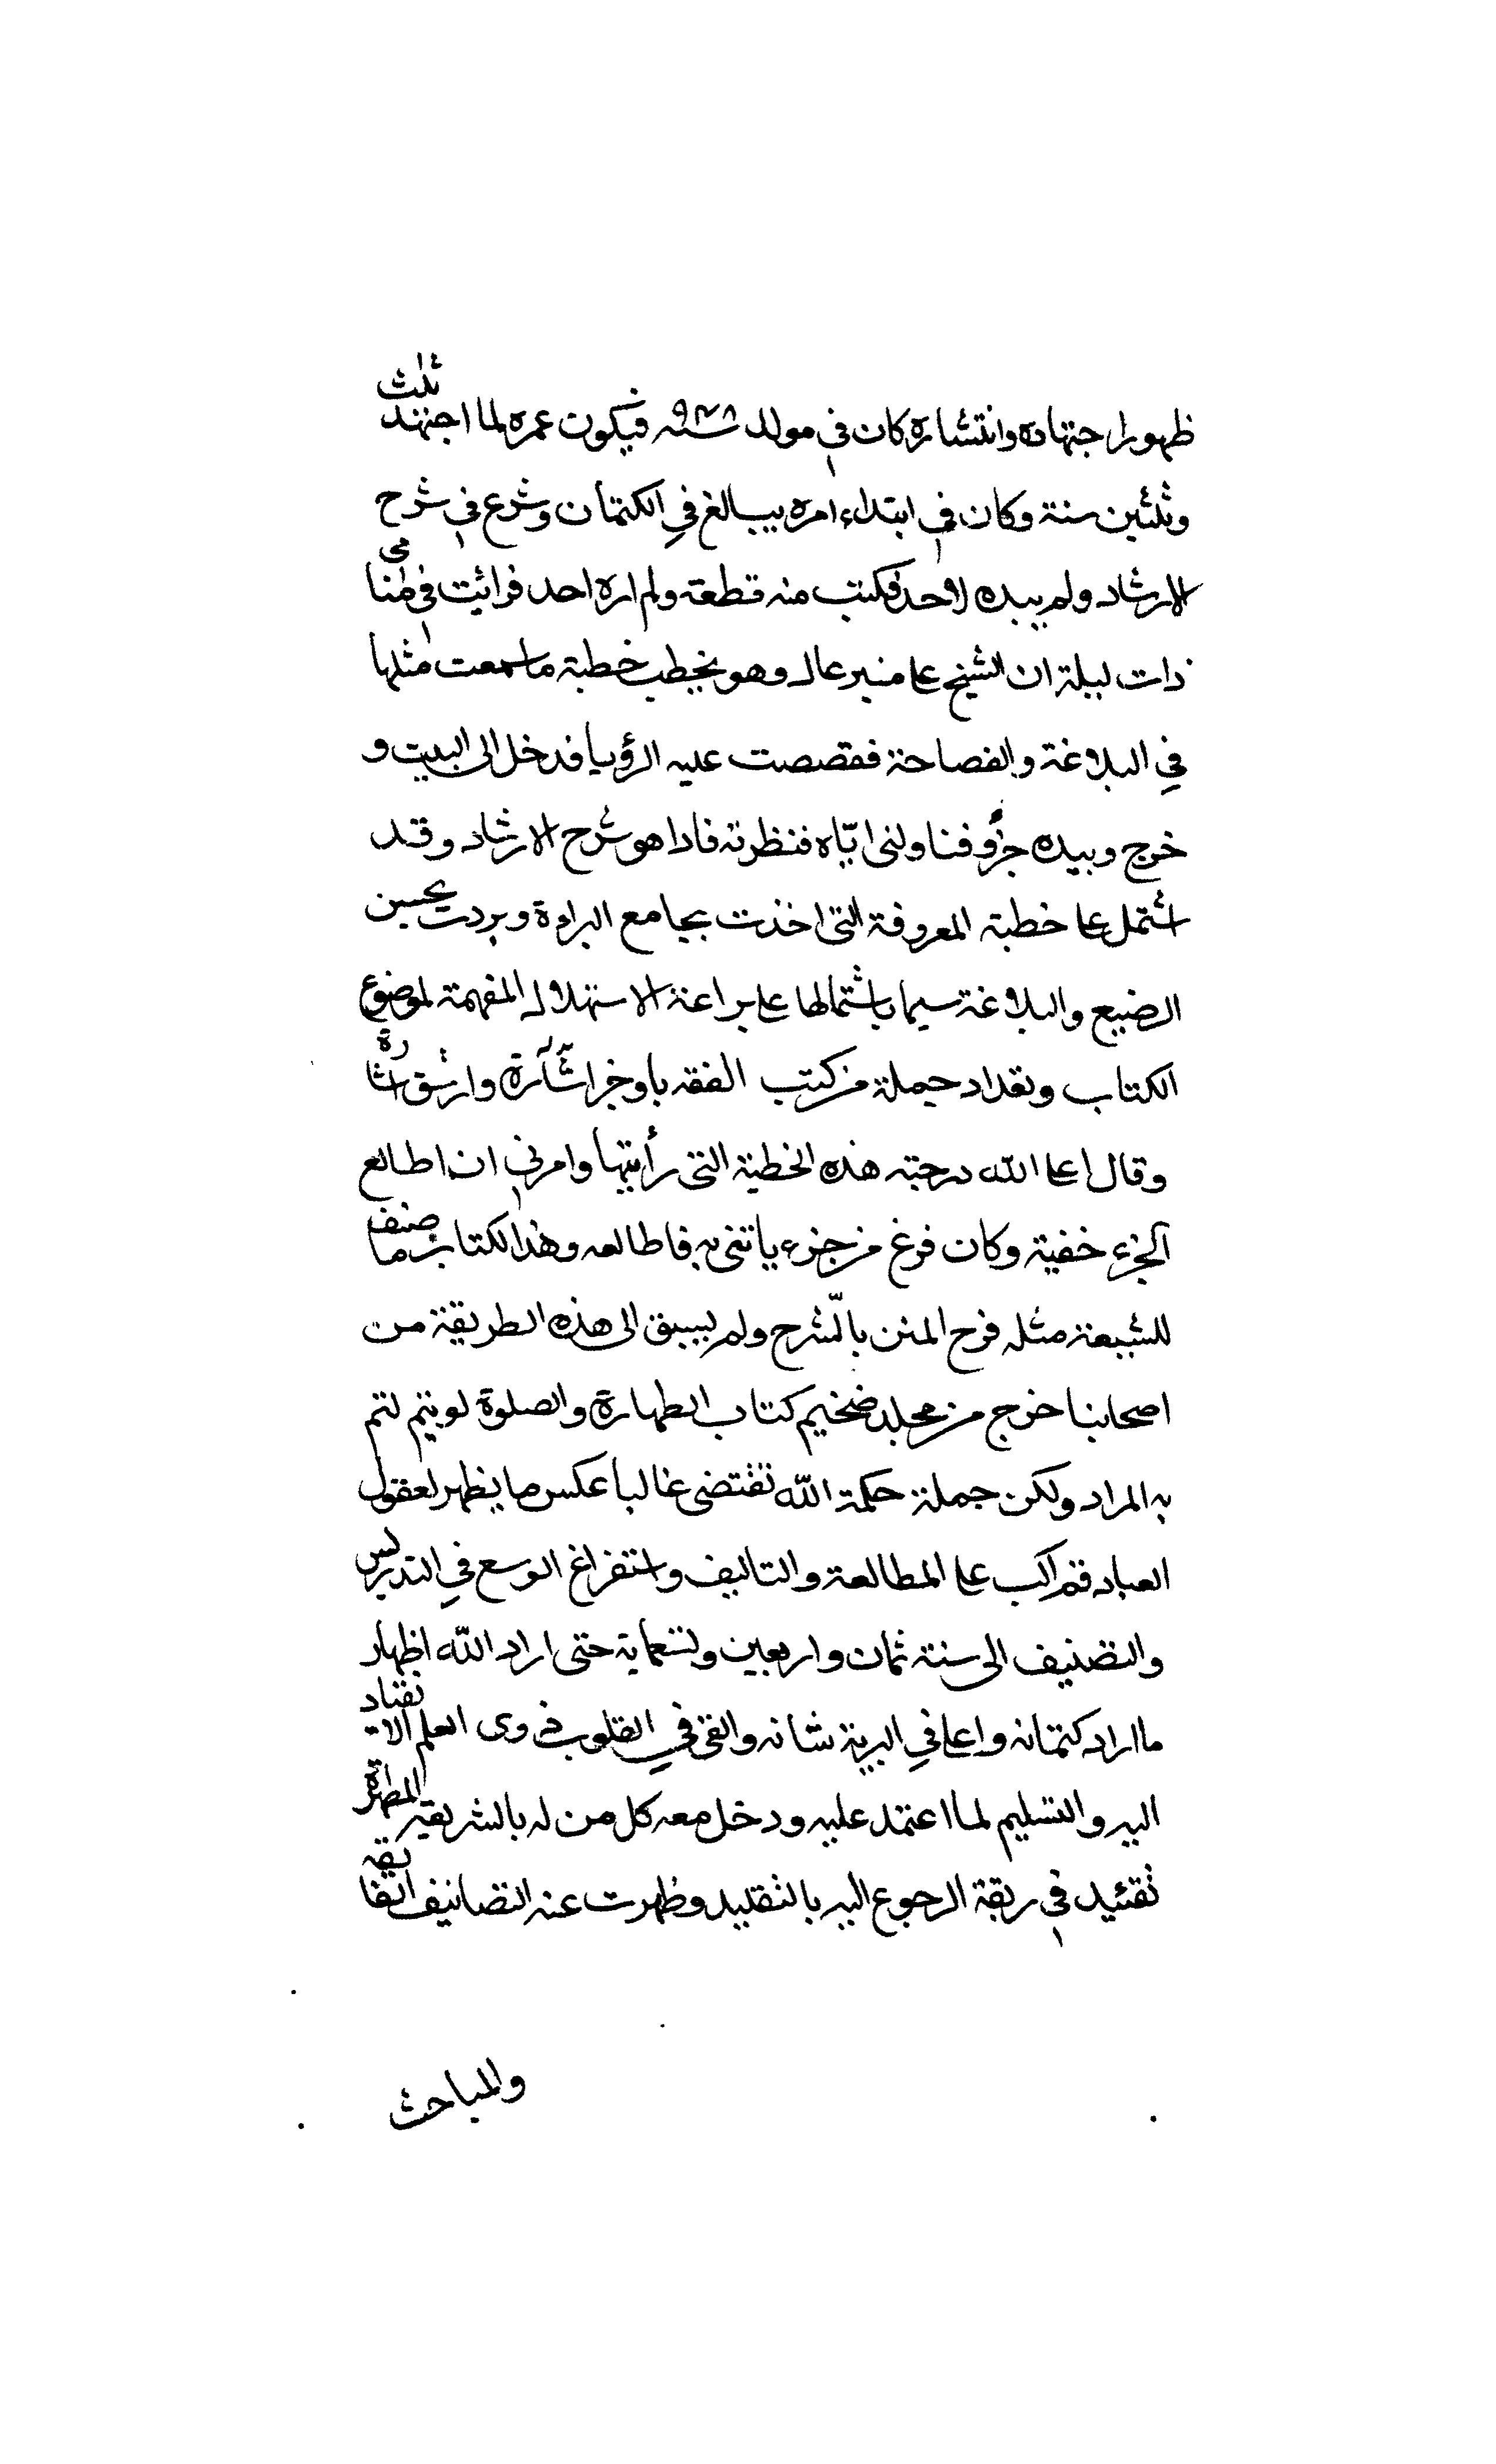 ظهور اجتهاده وانتشاره كان في مولد سنة ٩٤٨ فيكون عمره لما اجتهد ثلاث
وثلثين سنة وكان في ابتداء امره يبالغ في الكتمان وشرع في شرح
الارشاد ولم يبده لاحد فكتب منه قطعة ولم اره احد فرائيت في منامى
ذات ليلة ان الشيخ على منبر عال وهو يخطب خطبة ما سمعت مثلها
في البلاغة والفصاحة فقصصت عليه الرؤيا فدخل الى البيت و
خرج وبيده جزؤ فناولنى ايّاه فنظرته فاذا هو شرح الارشاد وقد
اشتمل على خطبة المعروفة التى اخذت بجامع البراءة وبردت يحسين
الصنيع والبلاغة سيما باشتمالها على براعة الاستهلال المفهمة لموضوع
الكتاب وتعداد جملة من كتب الفقه باوخر اشآرة وارشق اشارة
وقال اعلى الله درجته هذه الخطبة التى رأيتها وامرنى ان اطالع
الجزء خفية وكان فرغ من جزء ياتنى به فاطالعه وهذا لكتاب ما صنف
للشيعة مثله فرح المتن بالشّرح ولم يسبق الى هذه الطريقة من
اصحابنا خرج من مجلد ضخيم كتاب الطهارة والصلوة لو يتم لتم
به المراد ولكن جملة حكمة الله تقتضى غالبا عكس ما يظهر لعقول
العباد قم اكب على المطالعة والتاليف واستفراغ الوسع في التدريس
والتصنيف الى سنة ثمان واربعين وتسعماية حتى اراد الله اظهار
ما اراد كتمانه واعلى في البرية شانه والقى في القلوب ذوى العلم الانقياد
اليه والتسليم لما اعتمد عليه ودخل معه كل من له بالشريعة المطهرة
تقئيد في ربقة الرجوع اليه بالتقليد وظهرت عنه التصانيف الفايقة
والمباحث